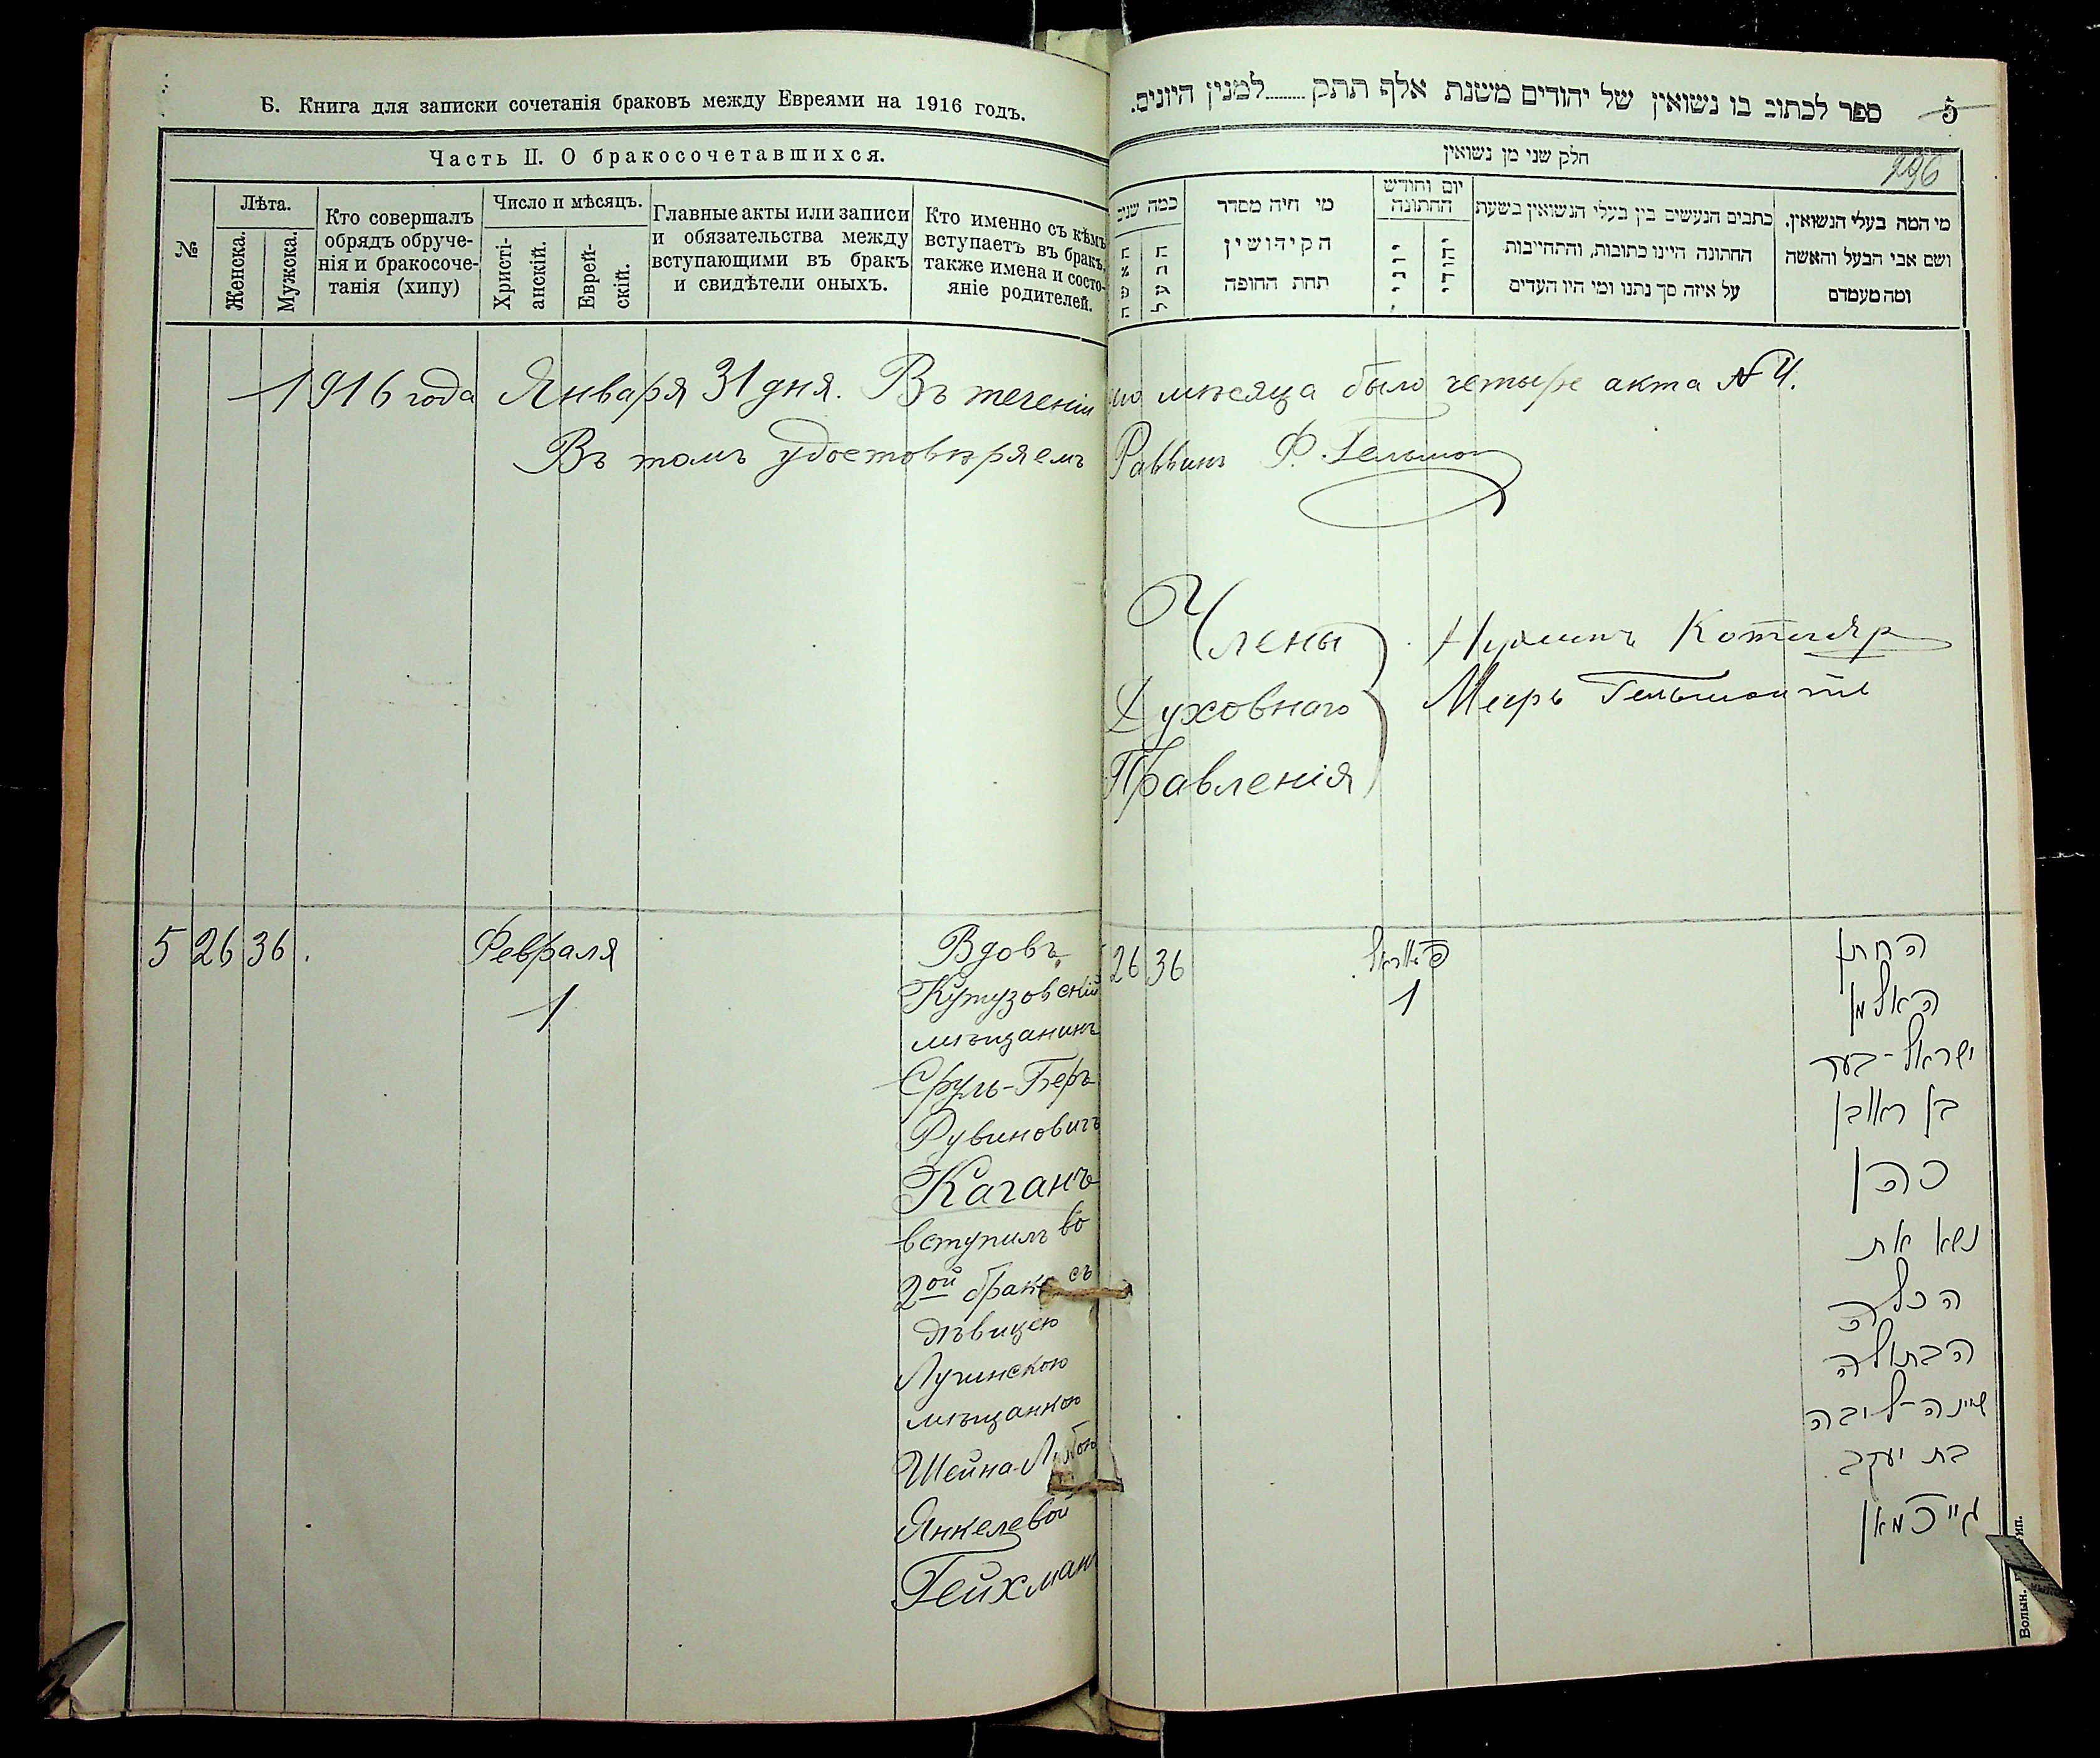 Б. Книга для записки сочетанія браковъ между Евреями на 1916 годъ.
Часть II. О бракосочетавшихся.
№
Лѣта.
Женска.
Мужска.
Кто совершалъ
обрядъ обруче-
нія и бракосоче-
танія (хипу)
Число и мѣсяцъ.
Христі-
анскій.
Еврей-
скій.
Главные акты или записи
и обязательства между
вступающими въ бракъ
и свидѣтели оныхъ.
Кто именно съ кѣмъ
вступаетъ въ бракъ,
также имена и состо-
яніе родителей.
ספר לכתוב בו נשואין של יהודים משנת אלף תתק........למנין היונים.
5
296
חלק שני מן נשואין
כמה שנים
האשה
הבעל
מי חיה מסדר
הקידושין
תחת החופה
יום וחודש
החתונה
יוניי
יהודי
כתבים הנעשים בין בעלי הנשואין בשעת
החתונה היינו כתובות, והתחייבות
על איזה סך נתנו ומי היו העדים
מי המה בעלי הנשואין.
ושם אבי הבעל והאשה
ומה מעמדם
1916 года Января 31 дня. Въ теченіи мѣсяца было четыре акта № 4.
Въ томъ удостовѣряемъ Раввинъ Ф.
Члены
Духовнаго
Правленія
Котляр
Мееръ
5 26 36
Февраля
1
Вдовъ
Кутузовскій
мѣщанинъ
Сруль-Беръ
Рувиновичъ
Каганъ
вступилъ во
2ой бракъ съ
дѣвицею
Лучинскою
мѣщанкою
Шейна-Любою
Янкелевой
Гейхман
26 36
פעווראל
1
החתן
האלמן
ישראל-בער
בן ראובן
כהן
נשא את
הכלה
הבתולה
שיינה-ליבה
בת יעקב
גייכמאן
Волын.